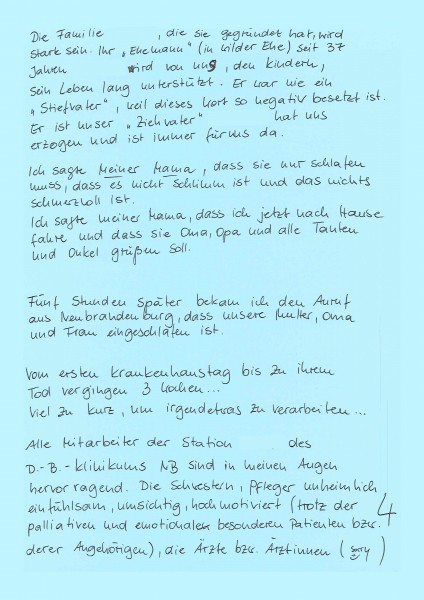 Die Familie , die sie gegründet hat, wird
stark sein. Ihr „Ehemann" (in wilder Ehe) seit 37
Jahren wird von uns, den Kindern,
sein Leben lang unterstützt. Er war wie ein
„Stiefvater", weil dieses Wort so negativ besetzt ist.
Er ist unser „Ziehvater" hat uns
erzogen und ist immer für uns da.
Ich sagte meiner Mama, dass sie nur schlafen
muss, dass es nicht schlimm ist und das nichts
schmerzvoll ist.
Ich sagte meiner Mama, dass ich jetzt nach Hause
fahre und dass sie Oma, Opa und alle Tanten
und Onkel grüßen soll.
Fünf Stunden später bekam ich den Anruf
aus Neubrandenburg, dass unsere Mutter, Oma
und Frau eingeschlafen ist.
Vom ersten Krankenhaustag bis zu ihrem
Tod vergingen 3 Wochen...
Viel zu kurz, um irgendetwas zu verarbeiten...
Alle Mitarbeiter der Station des
D.-B.-Klinikums NB sind in meinen Augen
hervorragend. Die Schwestern, Pfleger unheimlich
einfühlsam, umsichtig, hochmotiviert (trotz der
palliativen und emotionalen besonderen Patienten bzw.
derer Angehörigen), die Ärzte bzw. Ärztinnen (sorry)
4